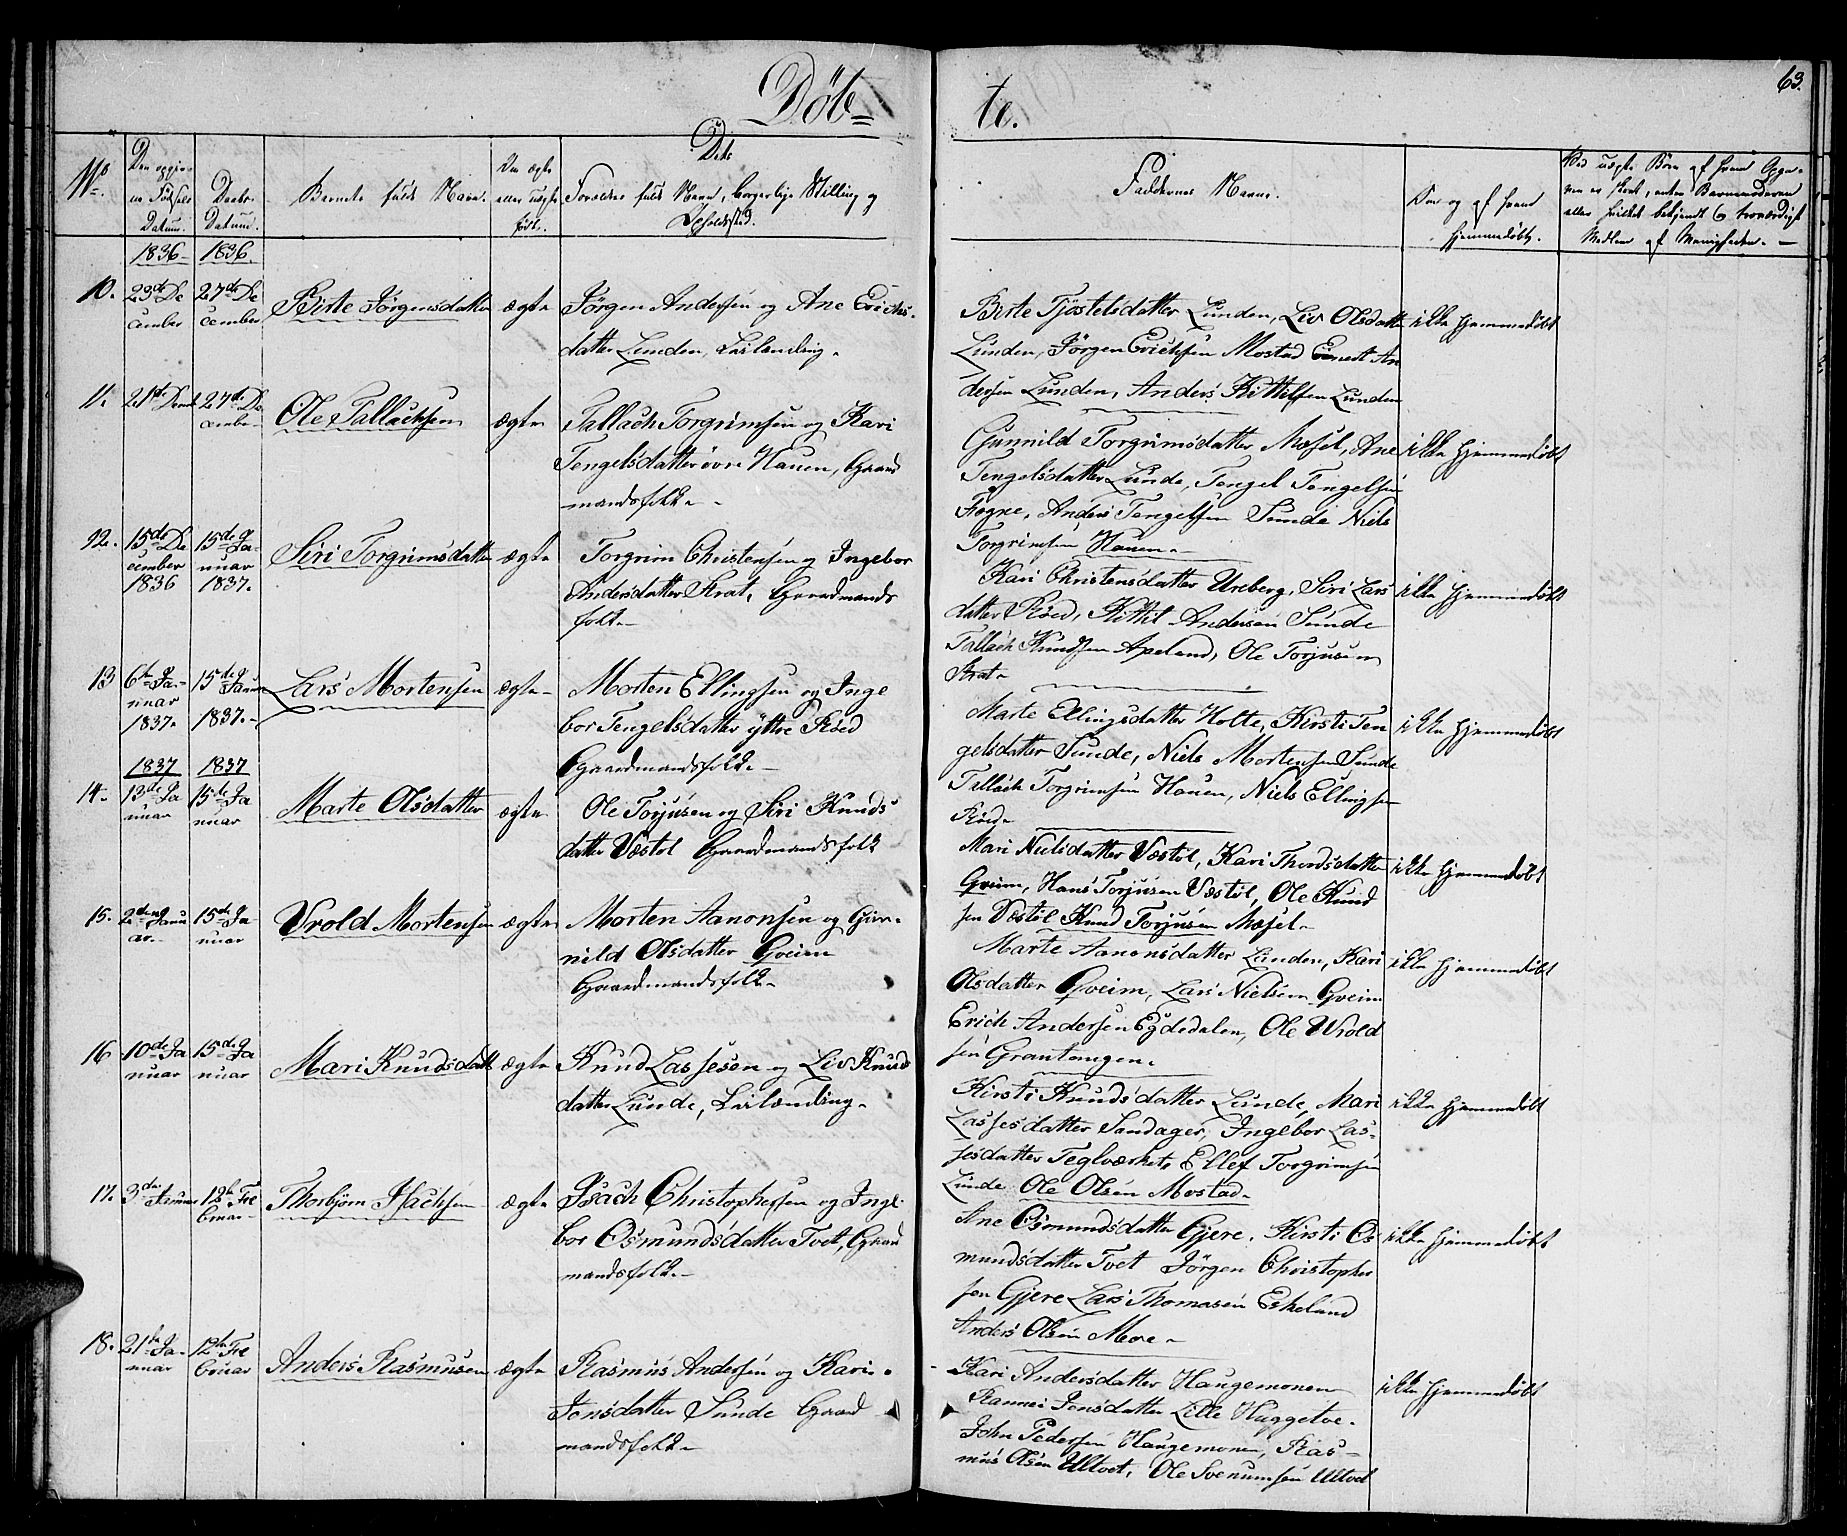 63.
Döb=
te.
No.
Den opgivne Fødsels Datum.
Daabs-Datum.
Barnets fulde Navn.
Om ægte eller uægte født.
Dets
Forældres fulde Navn, borgerlige Stilling og
Opholdssted.
Faddernes Navne.
Om og af hvem
hjemmedøbt.
Ved uægte Børn af hvem
Medlem af Menigheden. —
1836 1836.
10. 23de De
cember
27de De
cember
Birte Jörgensdatter
ægte
Jörgen Andersen og Ane Erichs-
datter Lunden, Leilending.
Birte Tjöstelsdatter Lunden, Liv Olsdatter
Lunden, Jörgen Erichsen Mostad An
dersen Lunden, Anders Kittilsen Lunden
ikke hjemmedøbt
11.
27de De
cember
Ole Tallachsen
ægte
Tallach Torgrimsen og Kari
Tengelsdatter övre Hauen, Gaard
mandsfolk.
Gunnild Torgrimsdatter Mæsel, Ane
Tengelsdatter Lunde, Tengel Tengelsen
Fogne, Anders Tengelsen Sunde Niels
Torgrimsen Hauen.
ikke hjemmedøbt
12. 15de De
cember
1836
15de Ja-
nuar
1837.
Siri Torgrimsdatter
ægte
Torgrim Christensen og Ingebor
Andersdatter Strat, Gaardmands
folk.
Kari Christensdatter Ureberg, Siri Lars
datter Röed, Kittil Andersen Sunde
Tallach Knudsen Apeland, Ole Torjusen
Strat.
ikke hjemmedøbt
13 6te Ja-
nuar
1837.
15de Januar
1837.
Lars Mortensen
ægte
Morten Ellingsen og Inge
bor Tengelsdatter ÿttre Röed
Gaardmandsfolk.
Marte Ellingsdatter Holte, Kirsti Ten
gelsdatter Sunde, Niels Mortensen Sunde
Tallach Torgrimsen Hauen, Niels Ellingsen
Röed.
ikke hjemmedøbt
1837 1837
14. 13de Ja
nuar
15de Ja
nuar
Marte Olsdatter
ægte
Ole Torjusen og Siri Knuds
datter Væstöl Gaardmandsfolk
Mari Nielsdatter Væstöl, Kari Thordsdatter
Gveim, Hans Torjusen Væstöl, Ole Knud
sen Væstöl Knud Torjusen Mæsel.
ikke hjemmedøbt
15. 2den Janu
ar.
15de Ja
nuar
Vrold Mortensen
ægte
Morten Aanonsen og Gun-
nild Olsdatter Gveim
Gaardmandsfolk.
Marte Aanonsdatter Lunden, Kari
Olsdatter Gveim, Lars Nielsen Gveim
Erich Andersen Egdedalen, Ole Vrold
sen Grantangen.
ikke hjemmedøbt
16 10de Ja
nuar
15de Ja
nuar
Mari Knudsdatter
ægte
Knud Lassesen og Liv Knuds
datter Lunde, Leilending.
Kirsti Knudsdatter Lunde, Mari
Lassesdatter Sandager, Ingebor Las-
sesdatter Teglværket, Ellef Torgrimsen
Lunde Ole Olsen Mostad.
ikke hjemmedøbt
17. 3die Januar
12te Fe
bruar
Thorbjörn Isachsen
ægte
Isach Christophersen og Inge
bor Osmundsdatter Tvet, Gaard
mandsfolk.
Ane Osmundsdatter Gjere, Kirsti Os
mundsdatter Tvet Jörgen Christopher
sen Gjere Lars Thomasen Eskeland
Anders Olsen Moe.
ikke hjemmedøbt
18. 21de Ja-
nuar
12te Fe
bruar
Anders Rasmusen
ægte
Rasmus Andersen og Karen
Jonsdatter Sunde Gaard
mandsfolk.
Kari Andersdatter Haugemonen
Rannei Jonsdatter Lille Huggetve.
John Pedersen Haugemonen, Ras-
mus Olsen Ulltvet, Ole Svenumsen Ulltvet
ikke hjemmedøbt